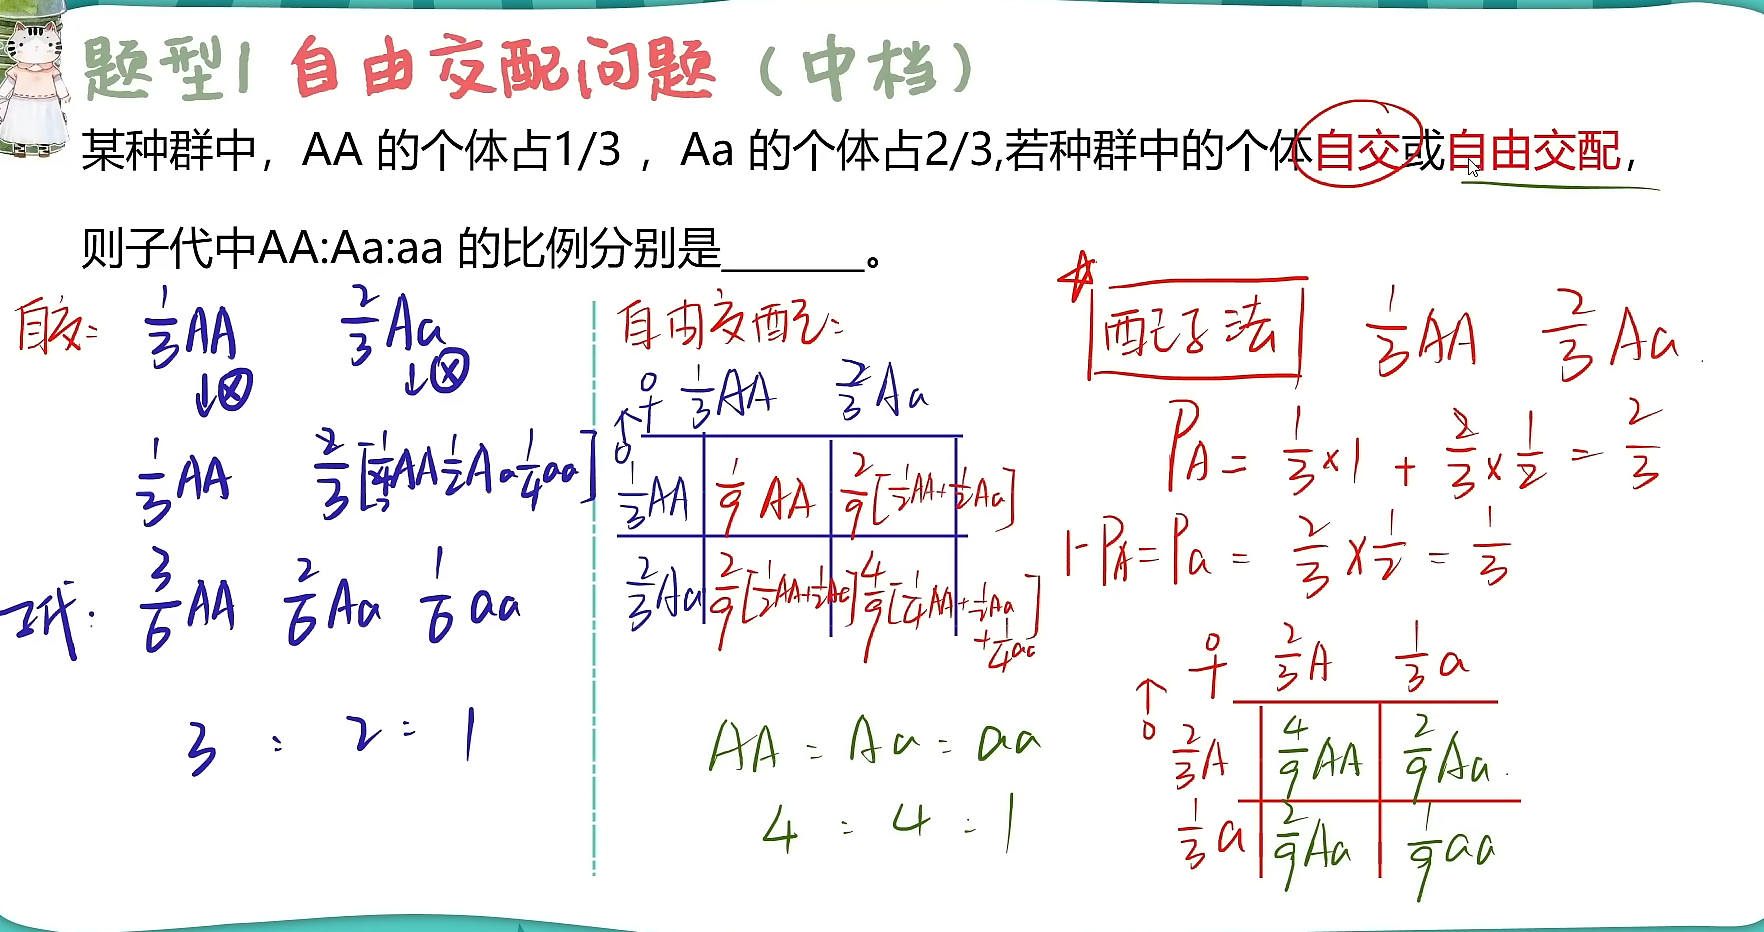 题型1 自由交配问题（中档）
某种群中，AA 的个体占1/3 ，Aa 的个体占2/3,若种群中的个体自交或自由交配，
则子代中AA:Aa:aa 的比例分别是______。
自交: 1/3 AA 2/3 Aa
↓⊗ ↓⊗
1/3 AA 2/3 [1/4 AA 1/2 Aa 1/4 aa]
子代: 3/6 AA 2/6 Aa 1/6 aa
3 : 2 : 1
自由交配:
♀ 1/3 AA 2/3 Aa
♂
1/3 AA 1/9 AA 2/9 [1/2 AA + 1/2 Aa]
2/3 Aa 2/9 [1/2 AA + 1/2 Aa] 4/9 [1/4 AA + 1/2 Aa + 1/4 aa]
AA : Aa : aa
4 : 4 : 1
配子法 1/3 AA 2/3 Aa
PA = 1/3 × 1 + 2/3 × 1/2 = 2/3
1-PA = Pa = 2/3 × 1/2 = 1/3
♀ 2/3 A 1/3 a
♂
2/3 A 4/9 AA 2/9 Aa
1/3 a 2/9 Aa 1/9 aa